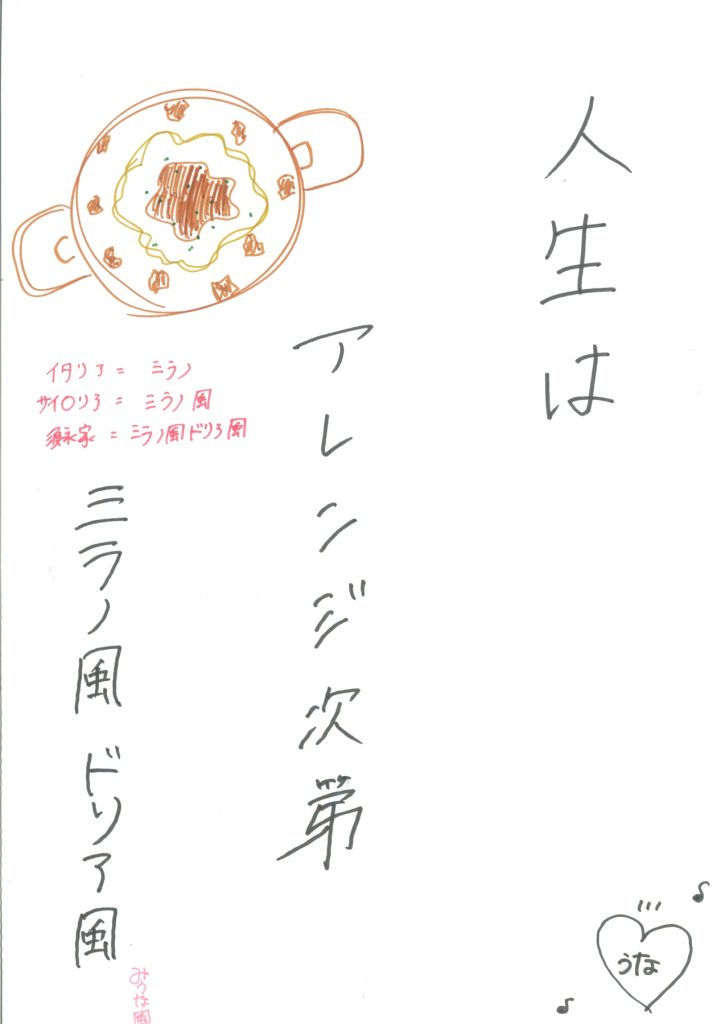 人生は
アレンジ次第
ミラノ風ドリア風
イタリア = ミラノ
サイ〇リア = ミラノ風
須永家 = ミラノ風ドリア風
うな